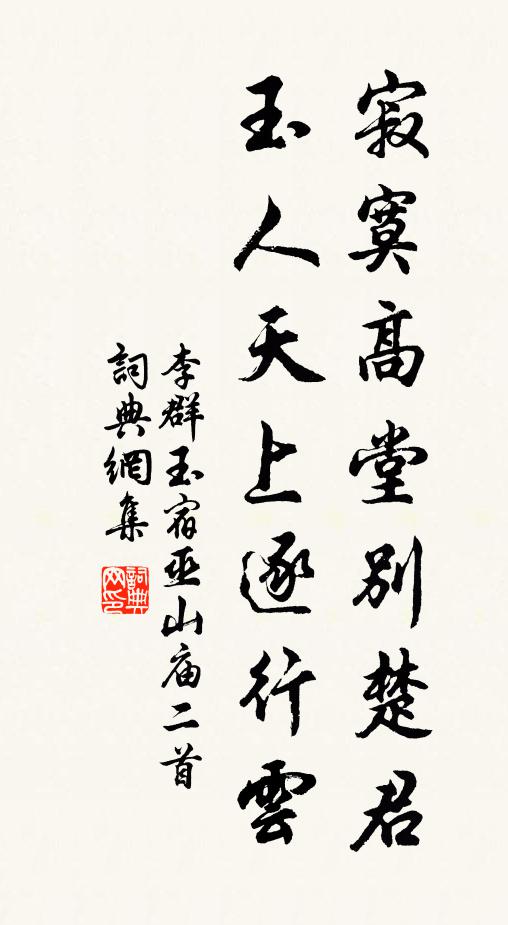 寂寞高堂別楚君
玉人天上逐行雲
李群玉宿巫山庙二首
詞典網集
詞典網印